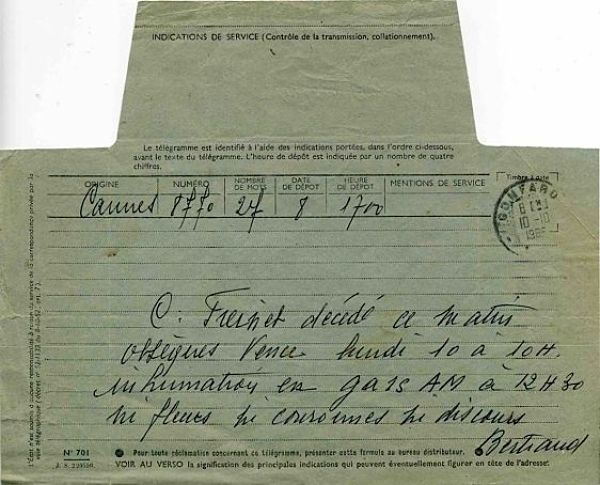 INDICATIONS DE SERVICE (Contrôle de la transmission, collationnement).
Le télégramme est identifié à l'aide des indications portées, dans l'ordre ci-dessous,
avant le texte du télégramme. L'heure de dépôt est indiquée par un nombre de quatre
chiffres.
Timbre à date
ORIGINE NUMÉRO NOMBRE DE MOTS DATE DE DÉPÔT HEURE DE DÉPÔT MENTIONS DE SERVICE
Cannes 8770 27 8 1700
GONFARON
8 H
10-10
1966
C. Freinet décédé ce matin
obsèques Vence lundi 10 à 10H.
inhumation en gars AM à 12H30
ni fleurs ni couronnes ni discours
Bertrand
N° 701
Pour toute réclamation concernant ce télégramme, présenter cette formule au bureau distributeur.
VOIR AU VERSO la signification des principales indications qui peuvent éventuellement figurer en tête de l'adresse.
L'État n'est soumis à aucune responsabilité à raison du service de la correspondance privée par la
voie télégraphique